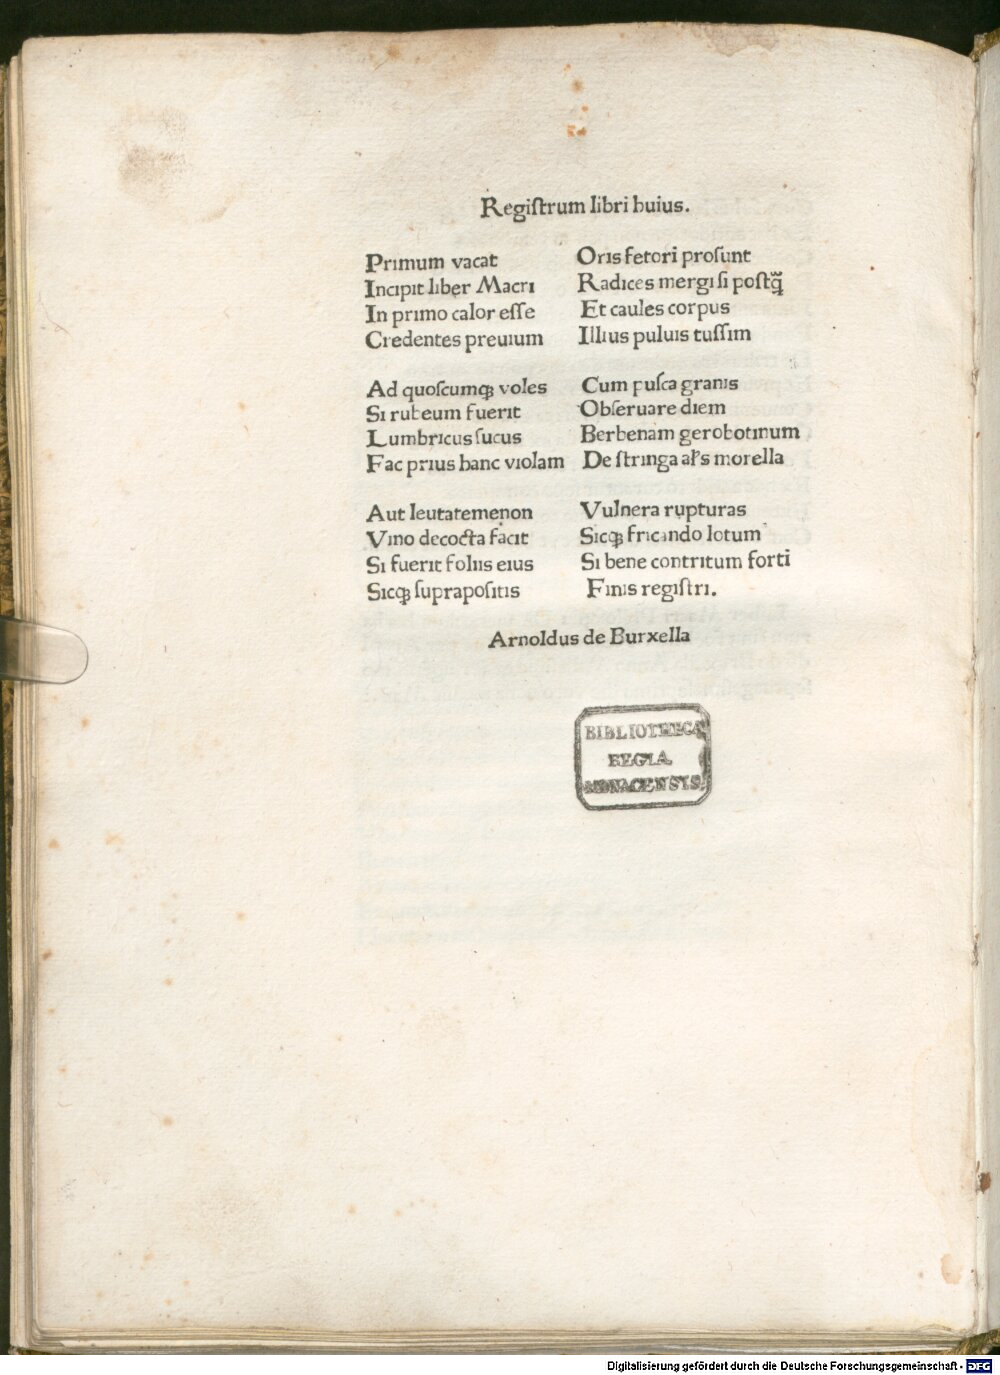 Regiſtrum libri huius.
Primum vacat
Incipit liber Macri
In primo calor eſſe
Credentes preuium
Ad quoſcumqꝫ voles
Si rubeum fuerit
Lumbricus ſucus
Fac prius hanc violam
Aut leutatemenon
Vino decocta facit
Si fuerit foliis eius
Sicqꝫ ſuprapoſitis
Oris fetori proſunt
Radices mergi ſi poſtq̃
Et caules corpus
Illius puluis tuſſim
Cum puſca granis
Obſeruare diem
Berbenam gerobotinum
De ſtringa al's morella
Vulnera rupturas
Sicqꝫ fricando lotum
Si bene contritum forti
Finis regiſtri.
Arnoldus de Burxella
BIBLIOTHECA
REGIA
MONACENSIS.
Digitalisierung gefördert durch die Deutsche Forschungsgemeinschaft - DFG